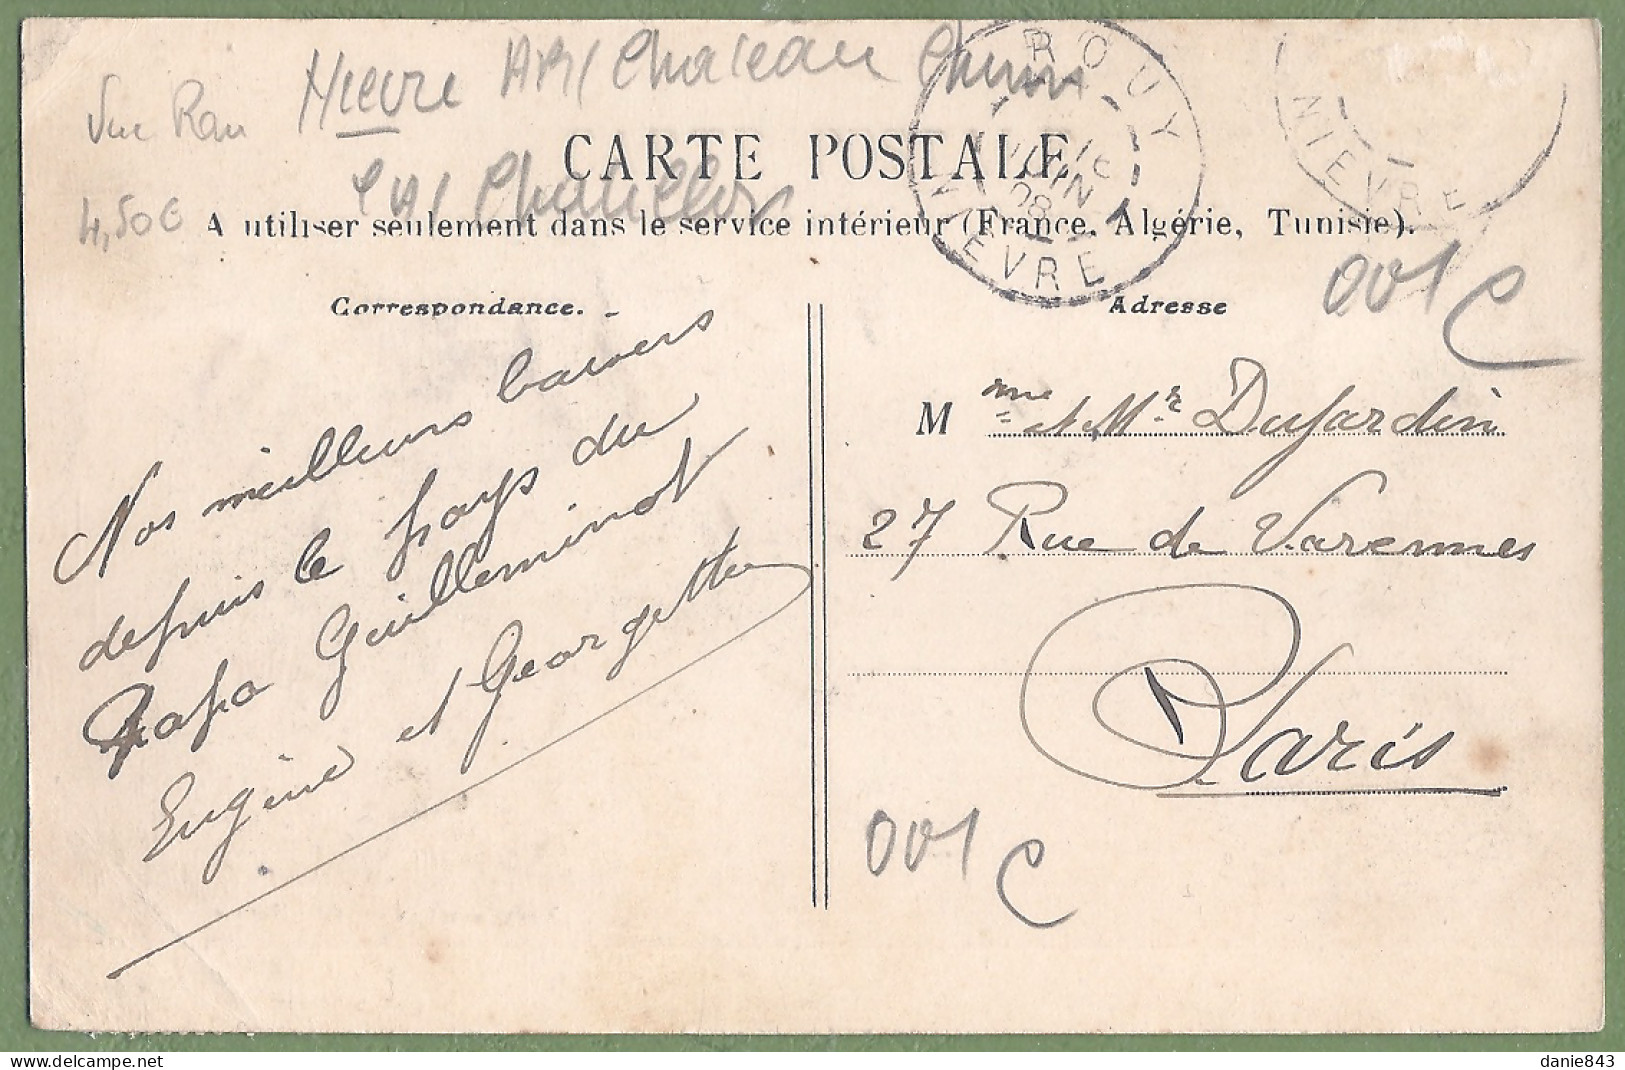 Nièvre ARR Chateau Chinon
Vue Rare
CARTE POSTALE
4,50€
CAN Chatillon
A utiliser seulement dans le service intérieur (France, Algérie, Tunisie).
ROUY
16
JUIN
08
NIEVRE
NIEVRE
001 C
Correspondance.
Adresse
Nos meilleurs baisers
depuis le pays du
Papa Guilleminot
Eugène et Georgette
M me et Mr Dujardin
27 Rue de Varennes
Paris
001 C
danie843